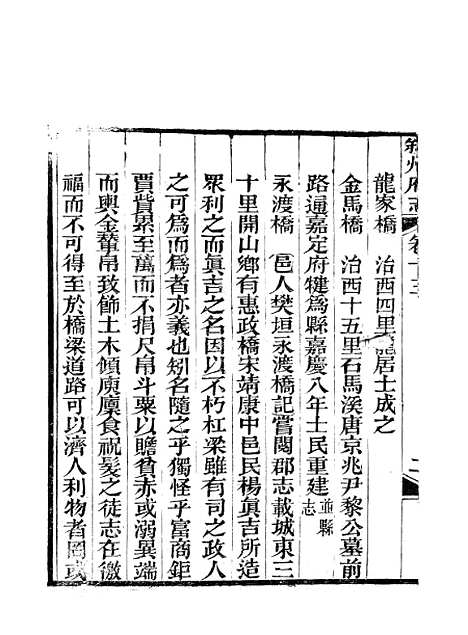 敘州府志 卷十三 二
龍家橋 治西四里龍居士成之
金馬橋 治西十五里石馬溪唐京兆尹黎公墓前
路通嘉定府犍爲縣嘉慶八年士民重建並縣志
永渡橋 邑人樊垣永渡橋記嘗閱郡志載城東三
十里開山鄉有惠政橋宋靖康中邑民楊眞吉所造
眾利之而眞吉之名因以不朽杠梁雖有司之政人
之可爲而爲者亦義也矧名隨之乎獨怪乎富商鉅
賈貲累至萬而不捐尺帛斗粟以贍貧赤或溺異端
而輿金輦帛致飾土木傾庾廩食祝髮之徒志在徼
福而不可得至於橋梁道路可以濟人利物者罔或